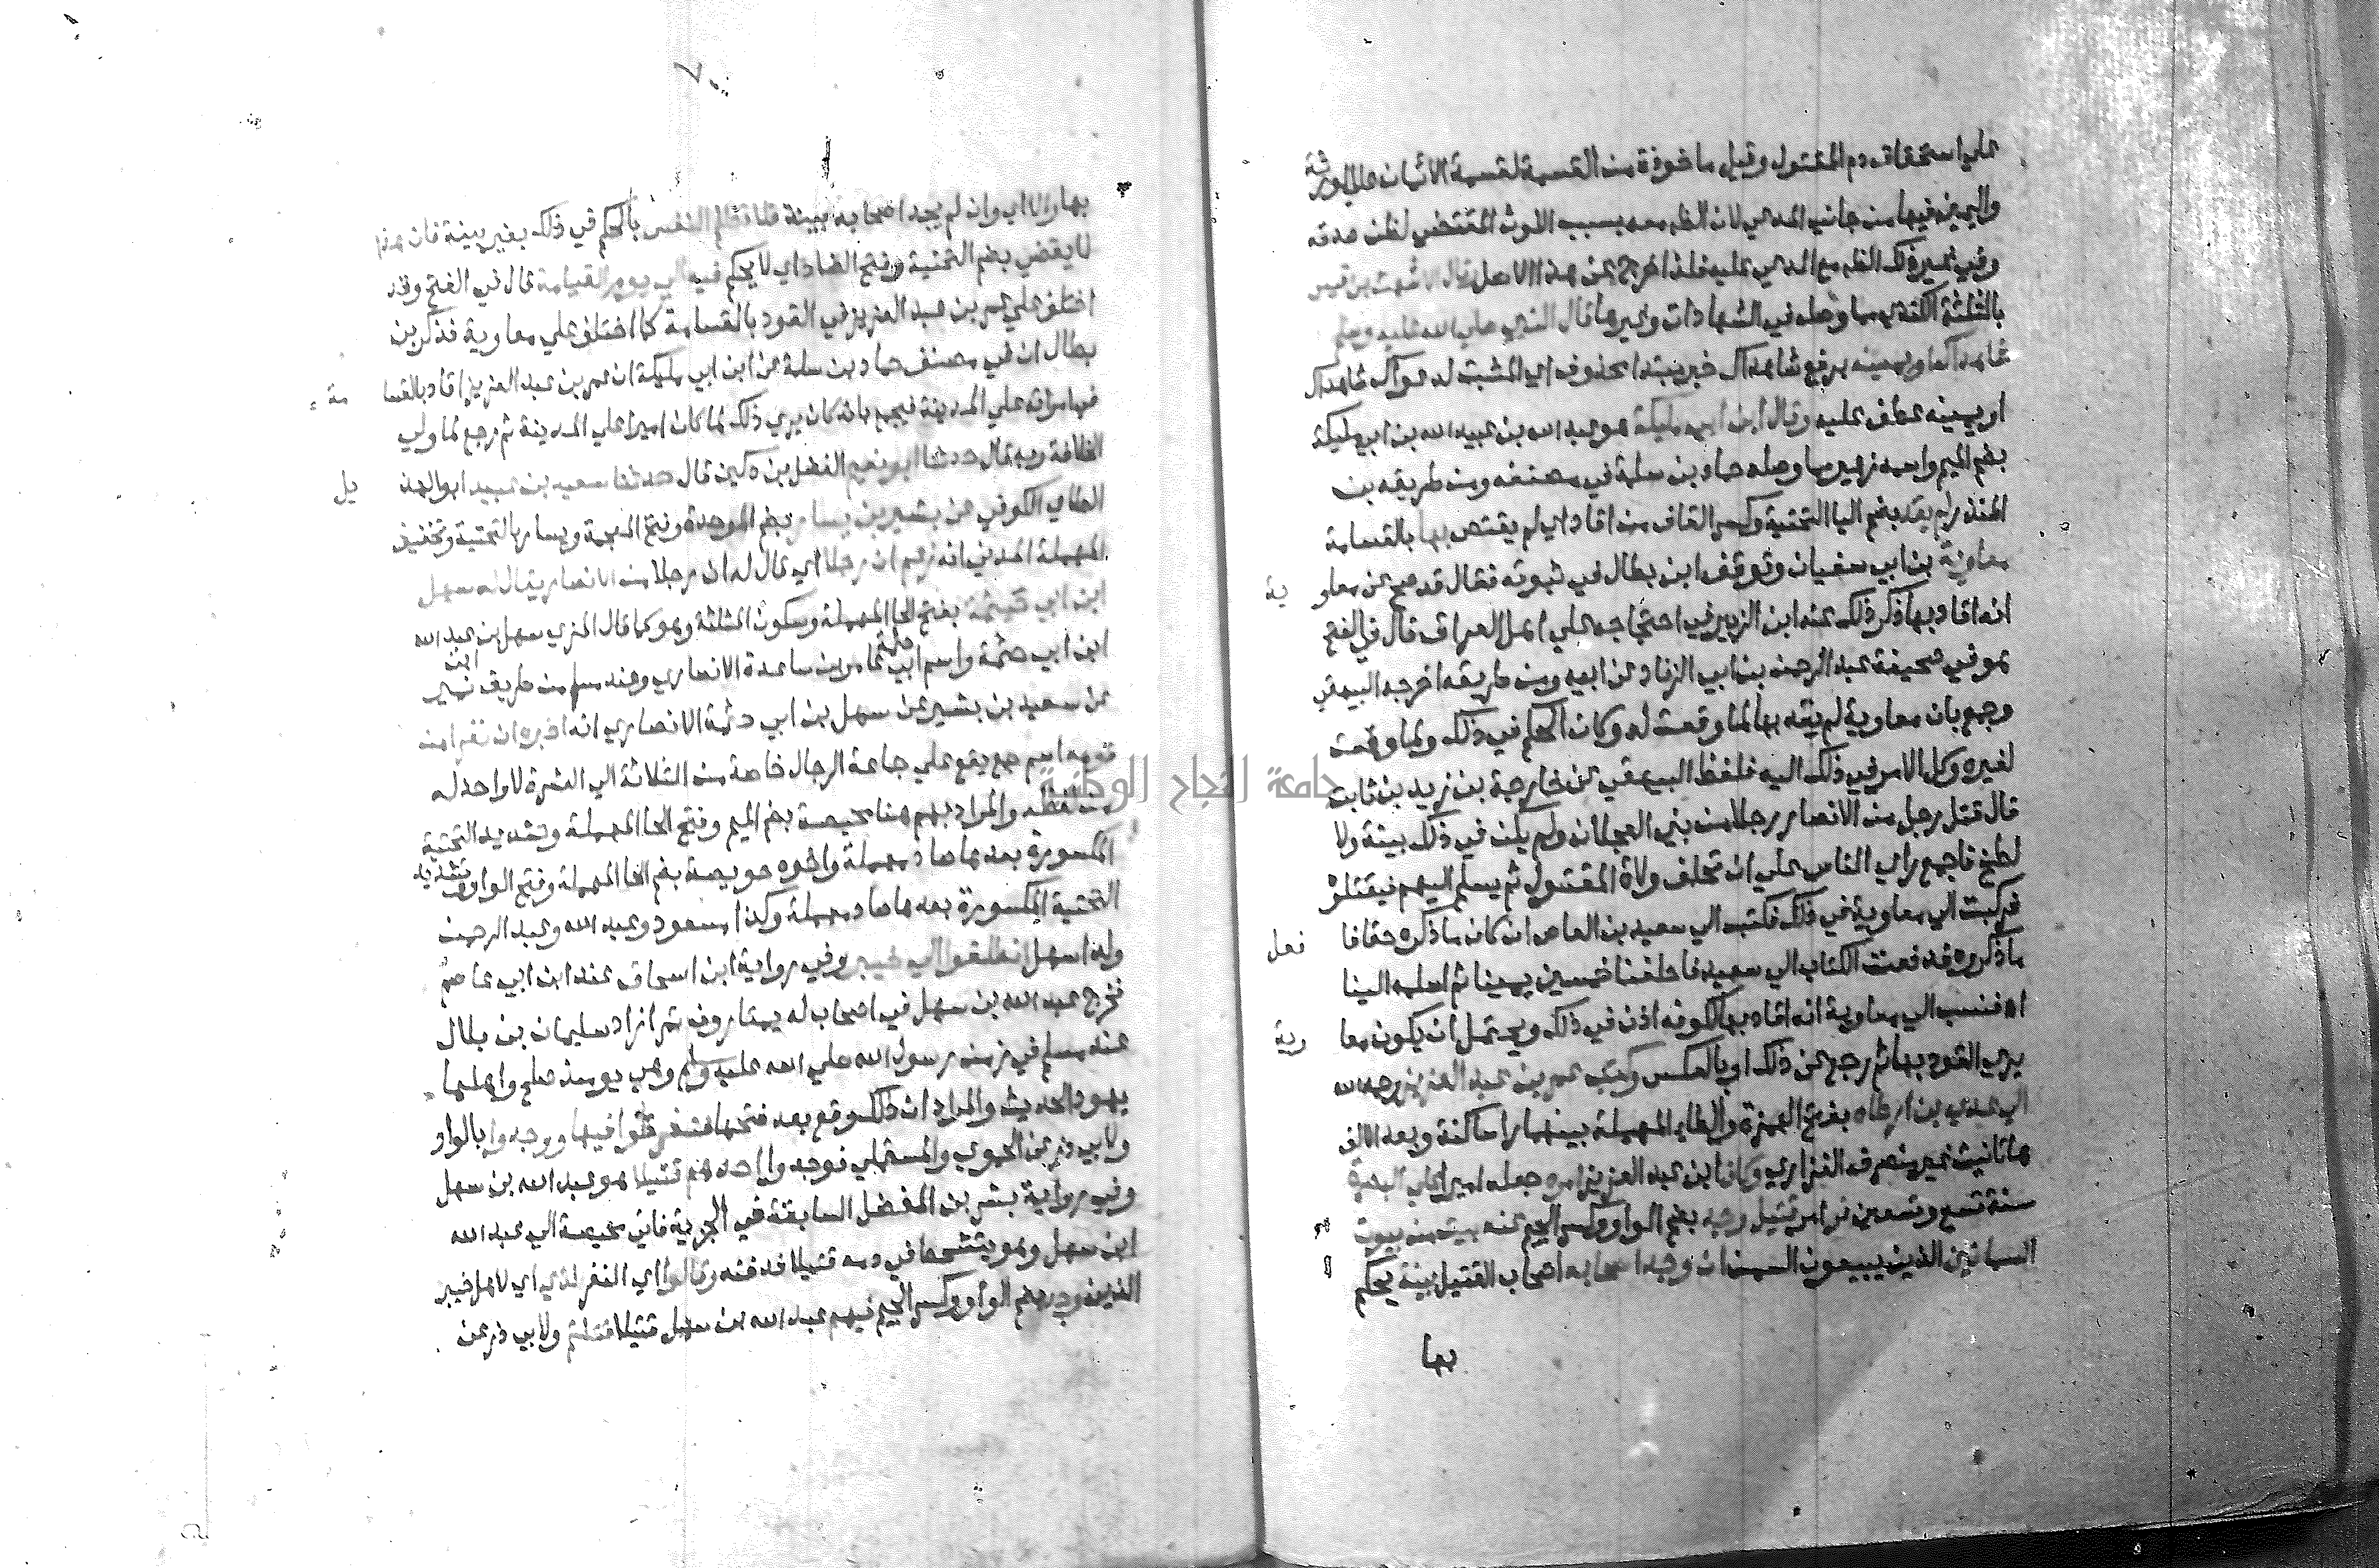 على استحقاق دم المقتول وقيل ماخوذة من القسمة لقسمة الايمان على الورثة
واليمين فيها من جانب المدعي لان الظاهر معه بسبب اللوث المقتضي لظن صدقه
وفي غير ذلك الظاهر مع المدعي عليه فلذا خرج عن هذا الاصل وقال الاشعث بن قيس
بالمثلثة الكندي مما وصله في الشهادات وغيرها قال النبي صلي الله عليه وسلم
شاهداك او يمينه برفع شاهداك خبر مبتدا محذوف اي المثبت لدعواك شاهداك
او يمينه عطف عليه وقال ابن ابي مليكة هو عبد الله بن عبيد الله بن ابي مليكة
بضم الميم واسمه زهير مما وصله حماد بن سلمة في مصنفه ومن طريقه بن
المنذر لم يقد بضم اليا التحتية وكسر القاف من اقاد اي لم يقتص بها بالقسامة
معاوية بن ابي سفيان وتوقف ابن بطال في ثبوته فقال قد صح عن معاو ية
انه اقاد بها ذكر ذلك عنه ابن الزبير في احتجاجه على اهل العراق قال في الفتح
هو في صحيفة عبد الرحمن بن ابي الزناد عن ابيه ومن طريقه اخرجه البيهقي
وجمع بان معاوية لم يقد بها لما وقعت له وكان الحكم في ذلك ولما وقعت
لغيره وكل الامر في ذلك اليه فلفظ البيهقي عن خارجة بن زيد بن ثابت
قال قتل رجل من الانصار رجلا من بني العجلان ولم يكن في ذلك بينة ولا
لطخ فاجمع راي الناس على ان تحلف ولاة المقتول ثم يسلم اليهم فيقتلو
فركبت الي معاوية في ذلك فكتب الي سعيد بن العاص ان كان ما ذكره حقا فا فعل
ما ذكروه فدفعت الكتاب الي سعيد فاحلفنا خمسين يمينا ثم اسلمه الينا
اه فنسب الي معاوية انه اقاد بها لكونه اذن في ذلك ويحتمل ان يكون معا وية
يري القود بها ثم رجع عن ذلك او بالعكس وكتب عمر بن عبد العزيز رحمه الله
الي عدي بن ارطاه بفتح الهمزة والطاء المهملة بينهما را ساكنة وبعد الالف
ها تانيث غير منصرف الفزاري وكان ابن عبد العزيز امره جعله اميرا علي البصرة
سنة تسع وتسعين في امر قتيل وجد بضم الواو وكسر الجيم عند بيت من بيوت
السمانين الذين يبيعون السمن ان وجد اصحابه اصحاب القتيل بينة يحكم
بها
بها والا اي وان لم يجد اصحابه بينة فلا تظلم النفس بالحكم في ذلك بغير بينة فان هذا
لا يقضي بضم التحتية وفتح الضاد اي لا يحكم فيه الي يوم القيامة قال في الفتح وقد
اختلف علي عمر بن عبد العزيز في القود بالقسامة كما اختلف علي معاوية فذكر بن
بطال ان في مصنف حماد بن سلمة عن ابن ابي مليكة ان عمر بن عبد العزيز اقاد بالقسا مة
في امراته علي المدينة فيجمع بانه كان يري ذلك لما كان اميرا علي المدينة ثم رجع لما ولي
الخلافة وبه قال حدثنا ابو نعيم الفضل بن دكين قال حدثنا سعيد بن عبيد ابو الهذ يل
الطاي الكوفي عن بشير بن يسار بضم الموحدة وفتح المعجمة ويسار بالتحتية وتخفيف
المهملة المدني انه زعم ان رجلا اي قال له ان رجلا من الانصار يقال له سهل
ابن ابي حثمة بفتح الحا المهملة وسكون المثلثة وهو كما قال المزي سهل بن عبد الله
ابن ابي حثمة واسم ابي حثمة عامر بن ساعدة الانصاري وعند مسلم من طريق ابن نمير
عن سعيد بن بشير عن سهل بن ابي حثمة الانصاري انه اخبره ان نفرا من
قومه اسم جمع يقع علي جماعة الرجال خاصة من الثلاثة الي العشرة لا واحد له
من لفظه والمراد بهم هنا محيصة بضم الميم وفتح الحا المهملة وتشديد التحتية
المكسورة بعدها صاد مهملة واخوه حويصة بضم الحا المهملة وفتح الواو وتشديد
التحتية المكسورة بعدها صاد مهملة وكذا مسعود وعبد الله وعبد الرحمن
ولدا سهل انطلقوا الي خيبر وفي رواية ابن اسحاق عند ابن ابي عاصم
فخرج عبد الله بن سهل في اصحاب له يمتارون تمرا زاد سليمان بن بلال
عند مسلم في زمن رسول الله صلي الله عليه وسلم وهي يومئذ صلح واهلها
يهود الحديث والمراد ان ذلك وقع بعد فتحها فتفرقوا فيها ووجدوا بالواو
ولابي ذر عن الحموي والمستملي فوجدوا احدهم قتيلا هو عبد الله بن سهل
وفي رواية بشر بن المفضل السابقة في الجزية فاتي محيصة الي عبد الله
ابن سهل وهو يتشحط في دمه قتيلا فدفنه وقالوا اي النفر للذي اي لاهل خيبر
الذين وجد بضم الواو وكسر الجيم فيهم عبد الله بن سهل قتيلا قتلتم ولابي ذر عن
جامعة النجاح الوطنية